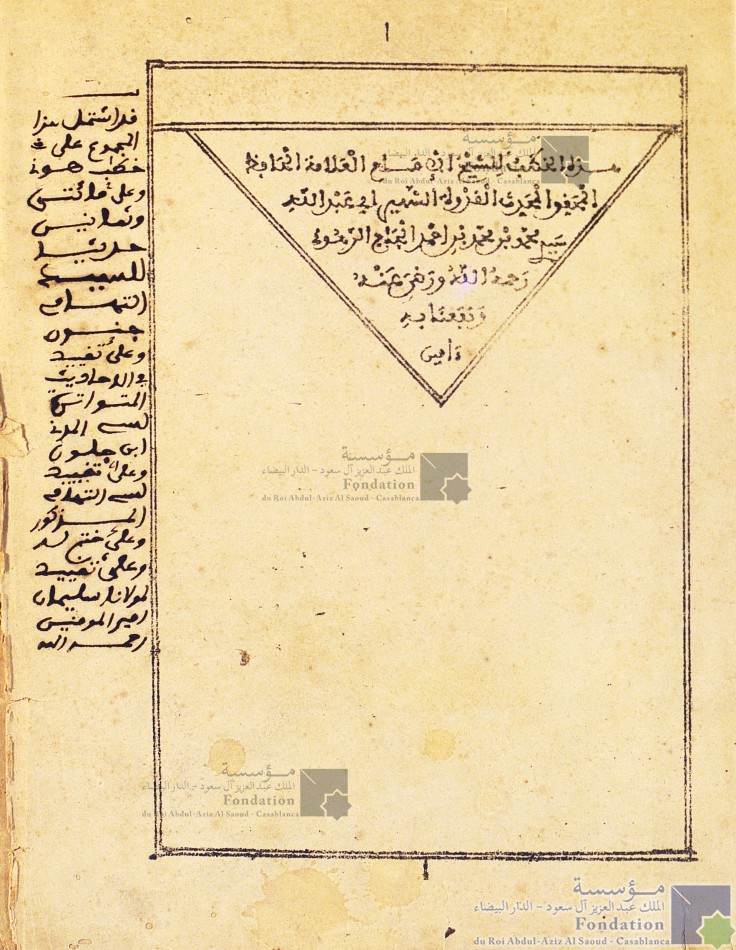 هذه الخطب للشيخ الإمام العلامة الحافظ
المحقق المحدث القدوة الشهير أبي عبد الله
سيدي محمد بن محمد بن احمد الحاج الرهوني
رحمه الله ورضي عنه
ونفعنا به
ءامين
قد اشتمل هذا
المجموع على
خطب هوني
وعلى مائتين
وثمانين
حديثا
للسيد
التهامي
جنون
وعلى تقييد
في الاحاديث
المتواترة
لسي المدني
ابن جلون
وعلى تقييد
لسي التهامي
المذكور
وعلى ختم له
وعلى تقييد
لمولانا سليمان
امير المومنين
رحمه الله
مؤسسة
الملك عبد العزيز آل سعود - الدار البيضاء
Fondation
du Roi Abdul-Aziz Al Saoud - Casablanca
مؤسسة
الملك عبد العزيز آل سعود - الدار البيضاء
Fondation
du Roi Abdul-Aziz Al Saoud - Casablanca
مؤسسة
الملك عبد العزيز آل سعود - الدار البيضاء
Fondation
du Roi Abdul-Aziz Al Saoud - Casablanca
مؤسسة
الملك عبد العزيز آل سعود - الدار البيضاء
Fondation
du Roi Abdul-Aziz Al Saoud - Casablanca